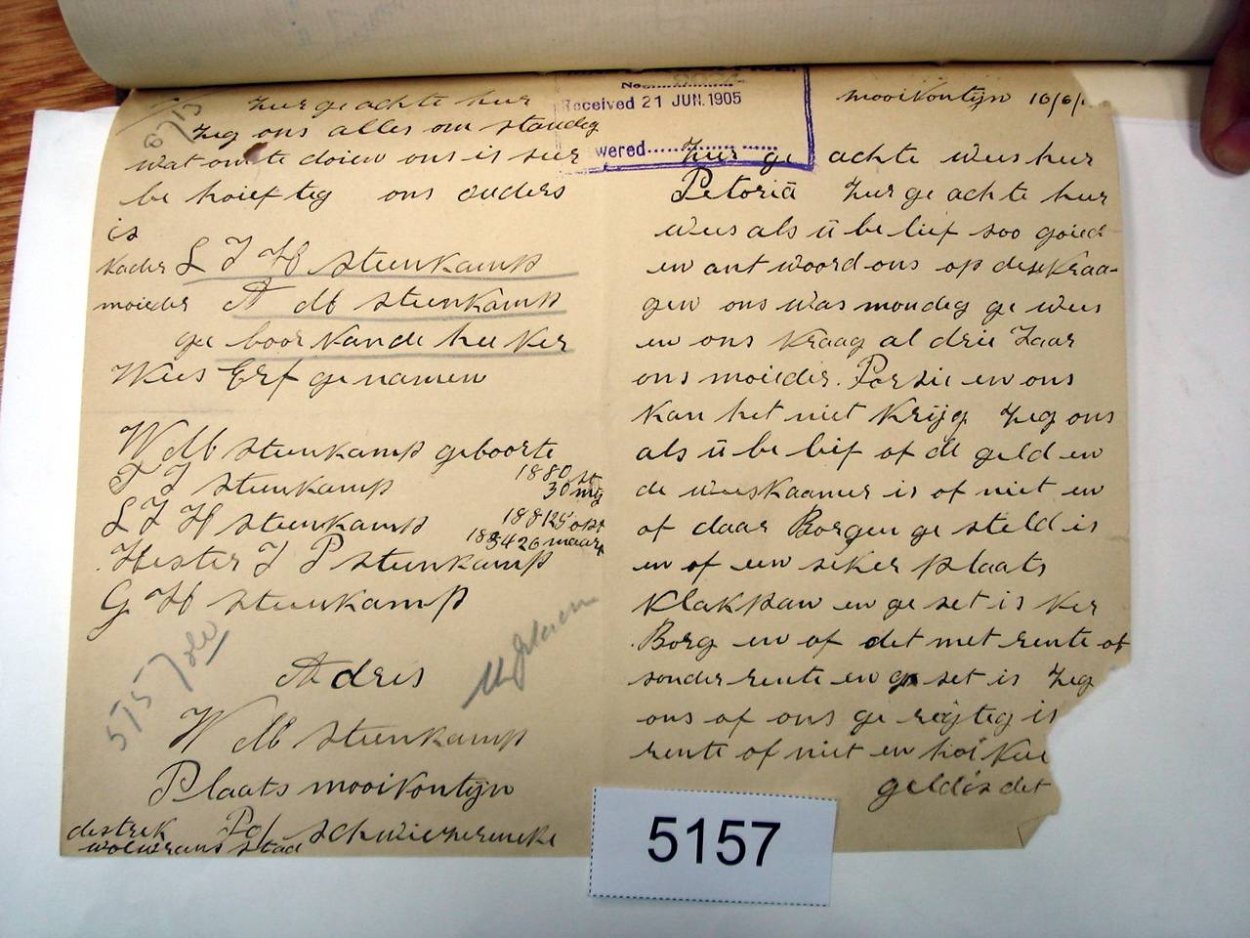 mooiVontijn 16/6/
Zeer ge achte wees heer
Petoria Zeer ge achte heer
wees als ü be lief soo goied
en ant woord ons op dese Kraa-
gen ons was mondeg ge wees
en ons Kraag al drie Jaar
ons moieder. Porsie en ons
Kan het niet Krijg Zeg ons
als ü be lief of de geld en
de weeskaamer is of niet en
of daar Borgen ge steld is
en of een seker plaats
Klakpan en ge set is Ver
Borg en of det met rente of
sonder rente en ge set is Zeg
ons of ons ge regteg is
rente of niet en hoi Vee
geld is det
Zeer ge achte heer
Zeg ons alles om standeg
wat om te doien ons is seer
be hoief teg ons ouders
is
Vader L J H Steenkamp
moieder A M Steenkamp
ge boor Van de hee Ver
Wees Erf ge namen
W M Steenkamp geboorte
J J Steenkamp 1880
30
L J H Steenkamp 1881
Hester J P Steenkamp
G H Steenkamp
Adres
W M Steenkamp
Plaats mooiVontijn
destrek Pos Schwiezereneke
wolmrans stad
No.
Received 21 JUN. 1905
wered
5157